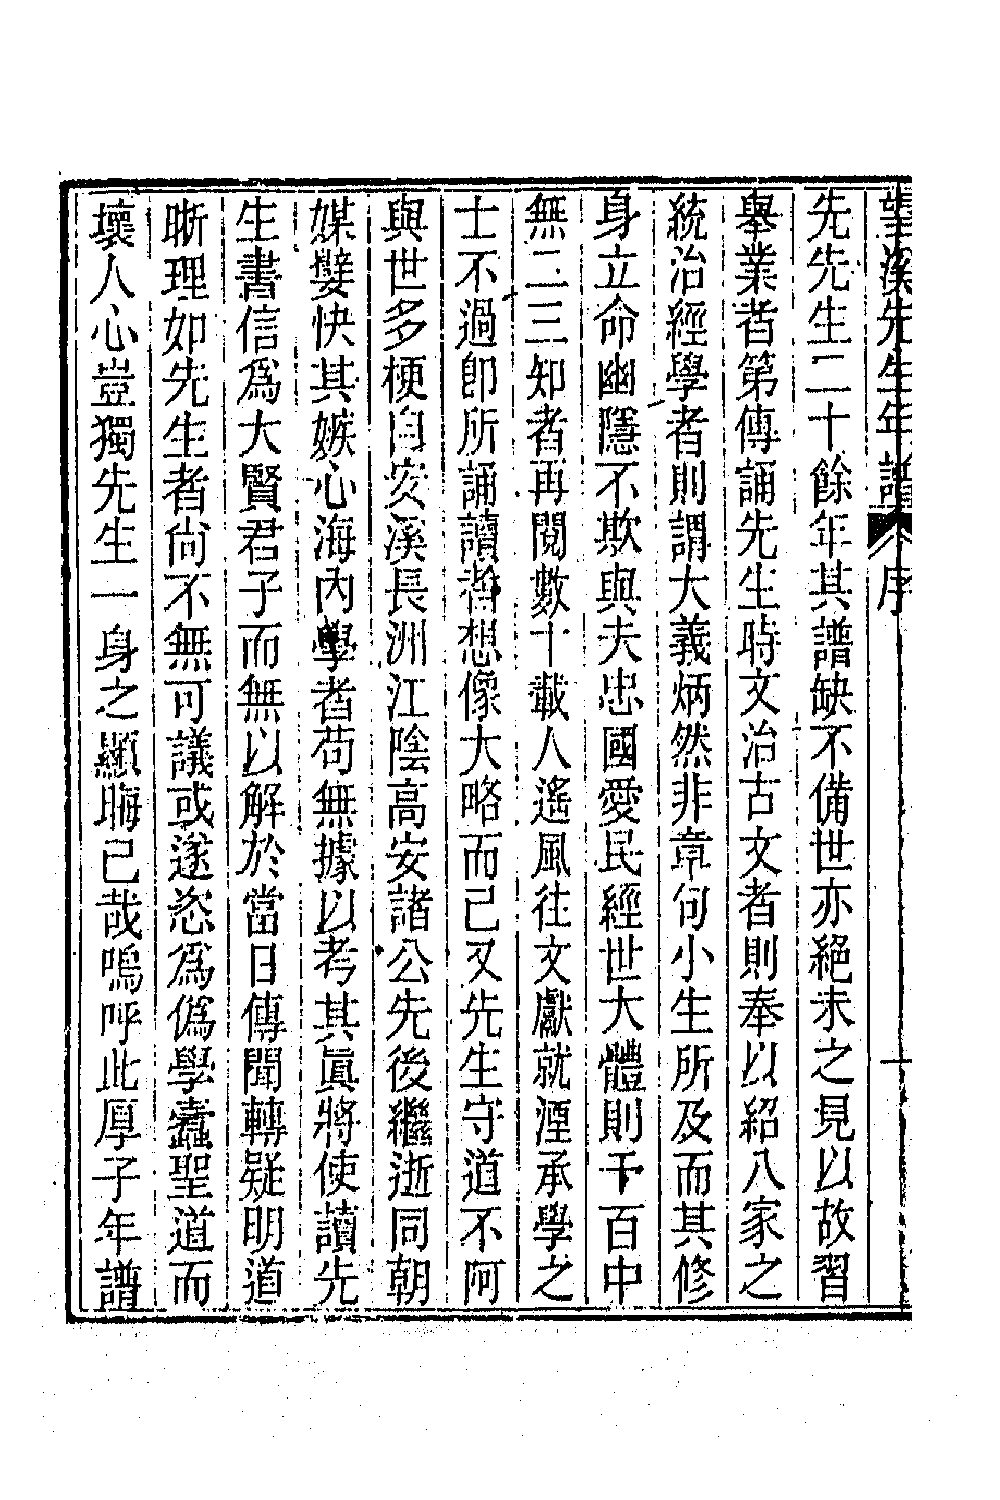 望溪先生年譜 序 一
先先生二十餘年其譜缺不備世亦絕未之見以故習
舉業者第傳誦先生時文治古文者則奉以紹八家之
統治經學者則謂大義炳然非章句小生所及而其修
身立命幽隱不欺與夫忠國愛民經世大體則千百中
無二三知者再閱數十載人遙風往文獻就湮承學之
士不過卽所誦讀者想像大略而已又先生守道不阿
與世多梗自安溪長洲江陰高安諸公先後繼逝同朝
媒孽快其嫉心海內學者苟無據以考其眞將使讀先
生書信爲大賢君子而無以解於當日傳聞轉疑明道
晰理如先生者尙不無可議或遂恣爲僞學蠹聖道而
壞人心豈獨先生一身之顯晦已哉嗚呼此厚子年譜